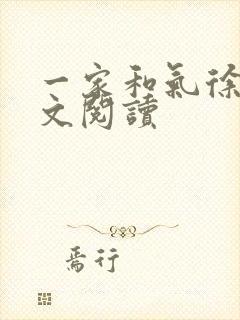 一家和氣徐
文閱讀
焉行